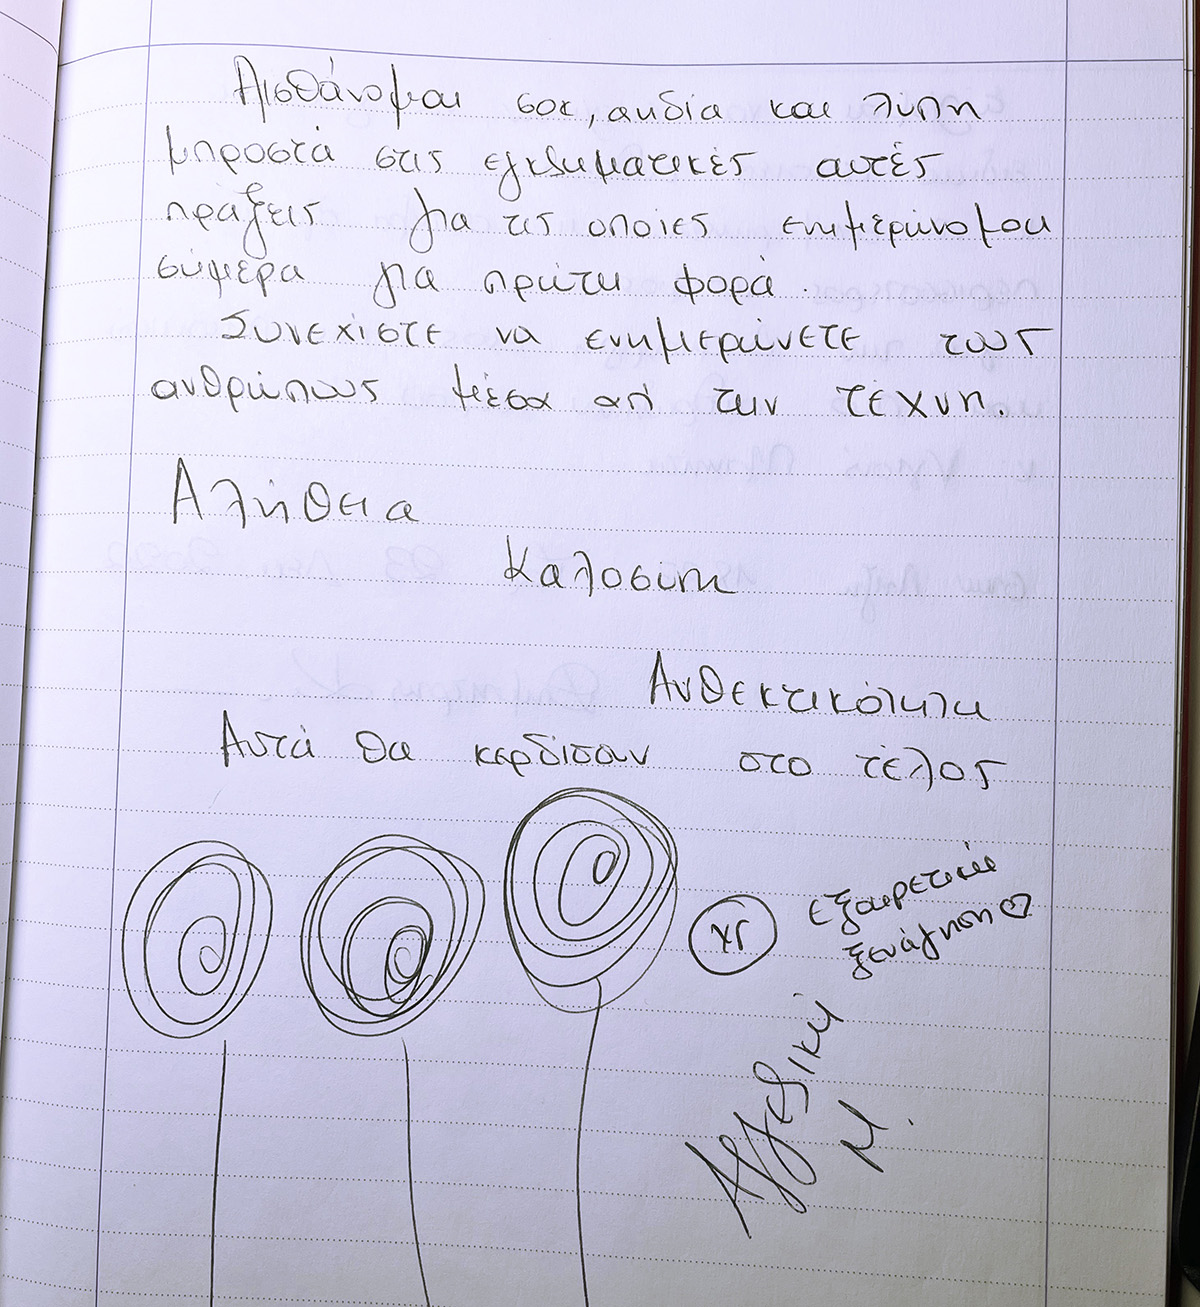 Αισθάνομαι σοκ, αηδία και λύπη
μπροστά στις εγκληματικές αυτές
πράξεις για τις οποίες ενημερώνομαι
σήμερα για πρώτη φορά.
Συνεχίστε να ενημερώνετε τους
ανθρώπους μέσα από την τέχνη.
Αλήθεια
Καλοσύνη
Ανθεκτικότητα
Αυτά θα κερδίσουν στο τέλος
υγ εξαιρετική
ξενάγηση ♡
Αγγελική
Μ.